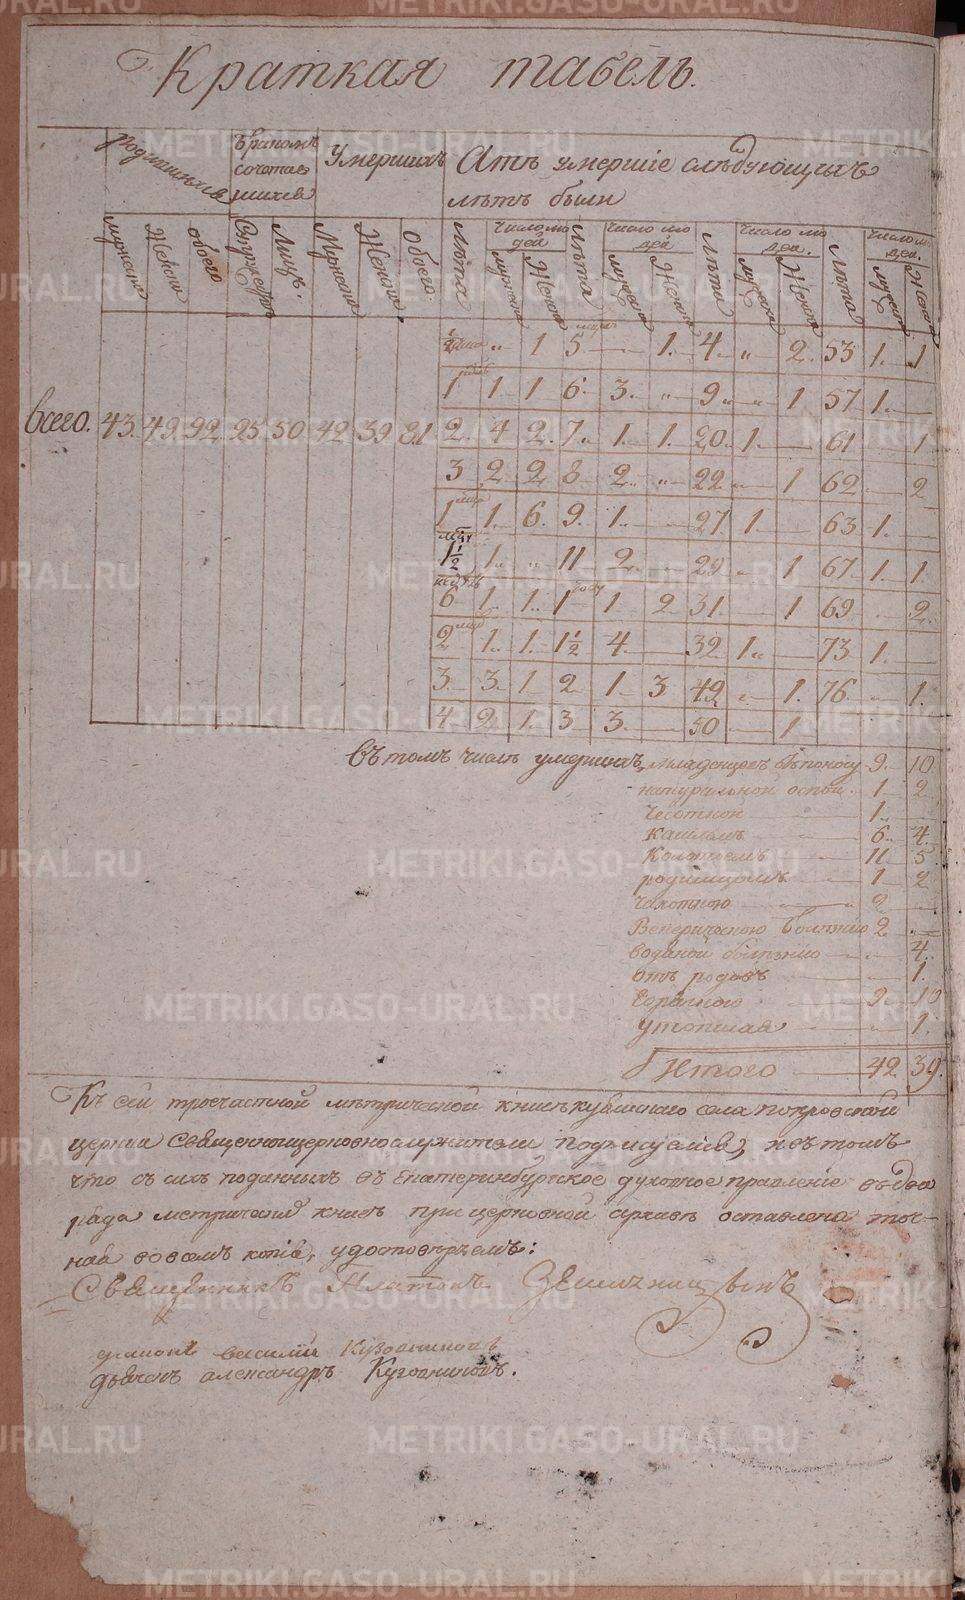 Краткая табель.
родившихся
бракомъ сочетавшихся
Умершихъ
Лѣтъ умершіе слѣдующихъ
лѣтъ были
мужеска Женска обоего Супружествъ Лицъ. Мужеска Женска Обоего. Лѣта
Число людей
мужеска Женска
Лѣта
Число людей
мужеска Женска
Лѣта
Число людей.
мужеска Женска
Лѣта
Число людей.
мужеска Женска
1 5 1. 4. 2. 53 1. 1
1 1 1 6. 3. 9 1 57 1.
Всего. 43. 49 92. 25 50 42 39 81. 2. 4 2. 7. 1. 1. 20. 1. 61 1
3 2 2 8 2. 22 1 62 2
1 1. 6. 9. 1. 27 1. 63 1.
1½ 1. 11 2. 29 1 67 1. 1.
6 1. 1. 1 году 1 2 31. 1 69 2.
2 1. 1. 1½ 4. 32 1. 73 1.
3. 3. 1 2 1. 3 42 1. 76 1.
4 2. 1. 3 3. 50 1
въ томъ числѣ умершихъ, младенцевъ 9. 10
натуральной оспой. 1. 2
1.
Кашлемъ 6. 4.
Колотьемъ 11 5
родимцомъ 1 2
2
Венерическою болѣзнію 2
водяной болѣзнію 4.
отъ родовъ 1.
Горячкою 9. 10
утопшая 1.
Итого 42 39.
Къ сей троечастной метрической книгѣ села покровской
церкви Священноцерковнослужители подписуемся, и въ томъ
что съ сихъ поданныхъ въ Екатеринбургское духовное правленіе въ два
ряда метрическихъ книгъ при церковной архивѣ оставлена точ-
ная вовсемъ копія, удостовѣряемъ:
Священникъ Платонъ
василій Кузовниковъ
дьячекъ александръ Кузовниковъ.
METRIKI.GASO-URAL.RU